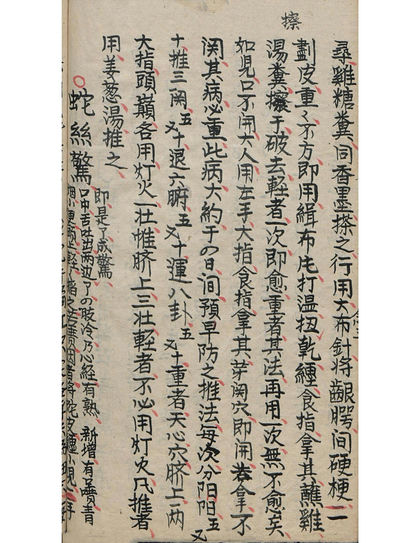 擦
尋雞糖糞同香墨搽之行用大布針将齦腭间硬梗一二
劃皮重々不方即用緝布庀打温扭乾纏食指拿其蘸雞
湯糞擦于破去軽者一次即愈重者其法再用一次無不愈矣
如児口不用大人用左手大指食指拿其芽関穴即開若拿不
関其病必重此病大約于四日间預早防之推法每次分阴阳五又
十推三関五又十退六腑五又十運八卦五又十重者天心穴臍上一两
大指頭巔各用灯火一壮惟臍上三壮軽者不必用灯火凡推者
用姜葱湯推之
蛇絲驚 即是了成驚
口中舌吐出两边了の肢冷乃心経有熱 新增有賷青